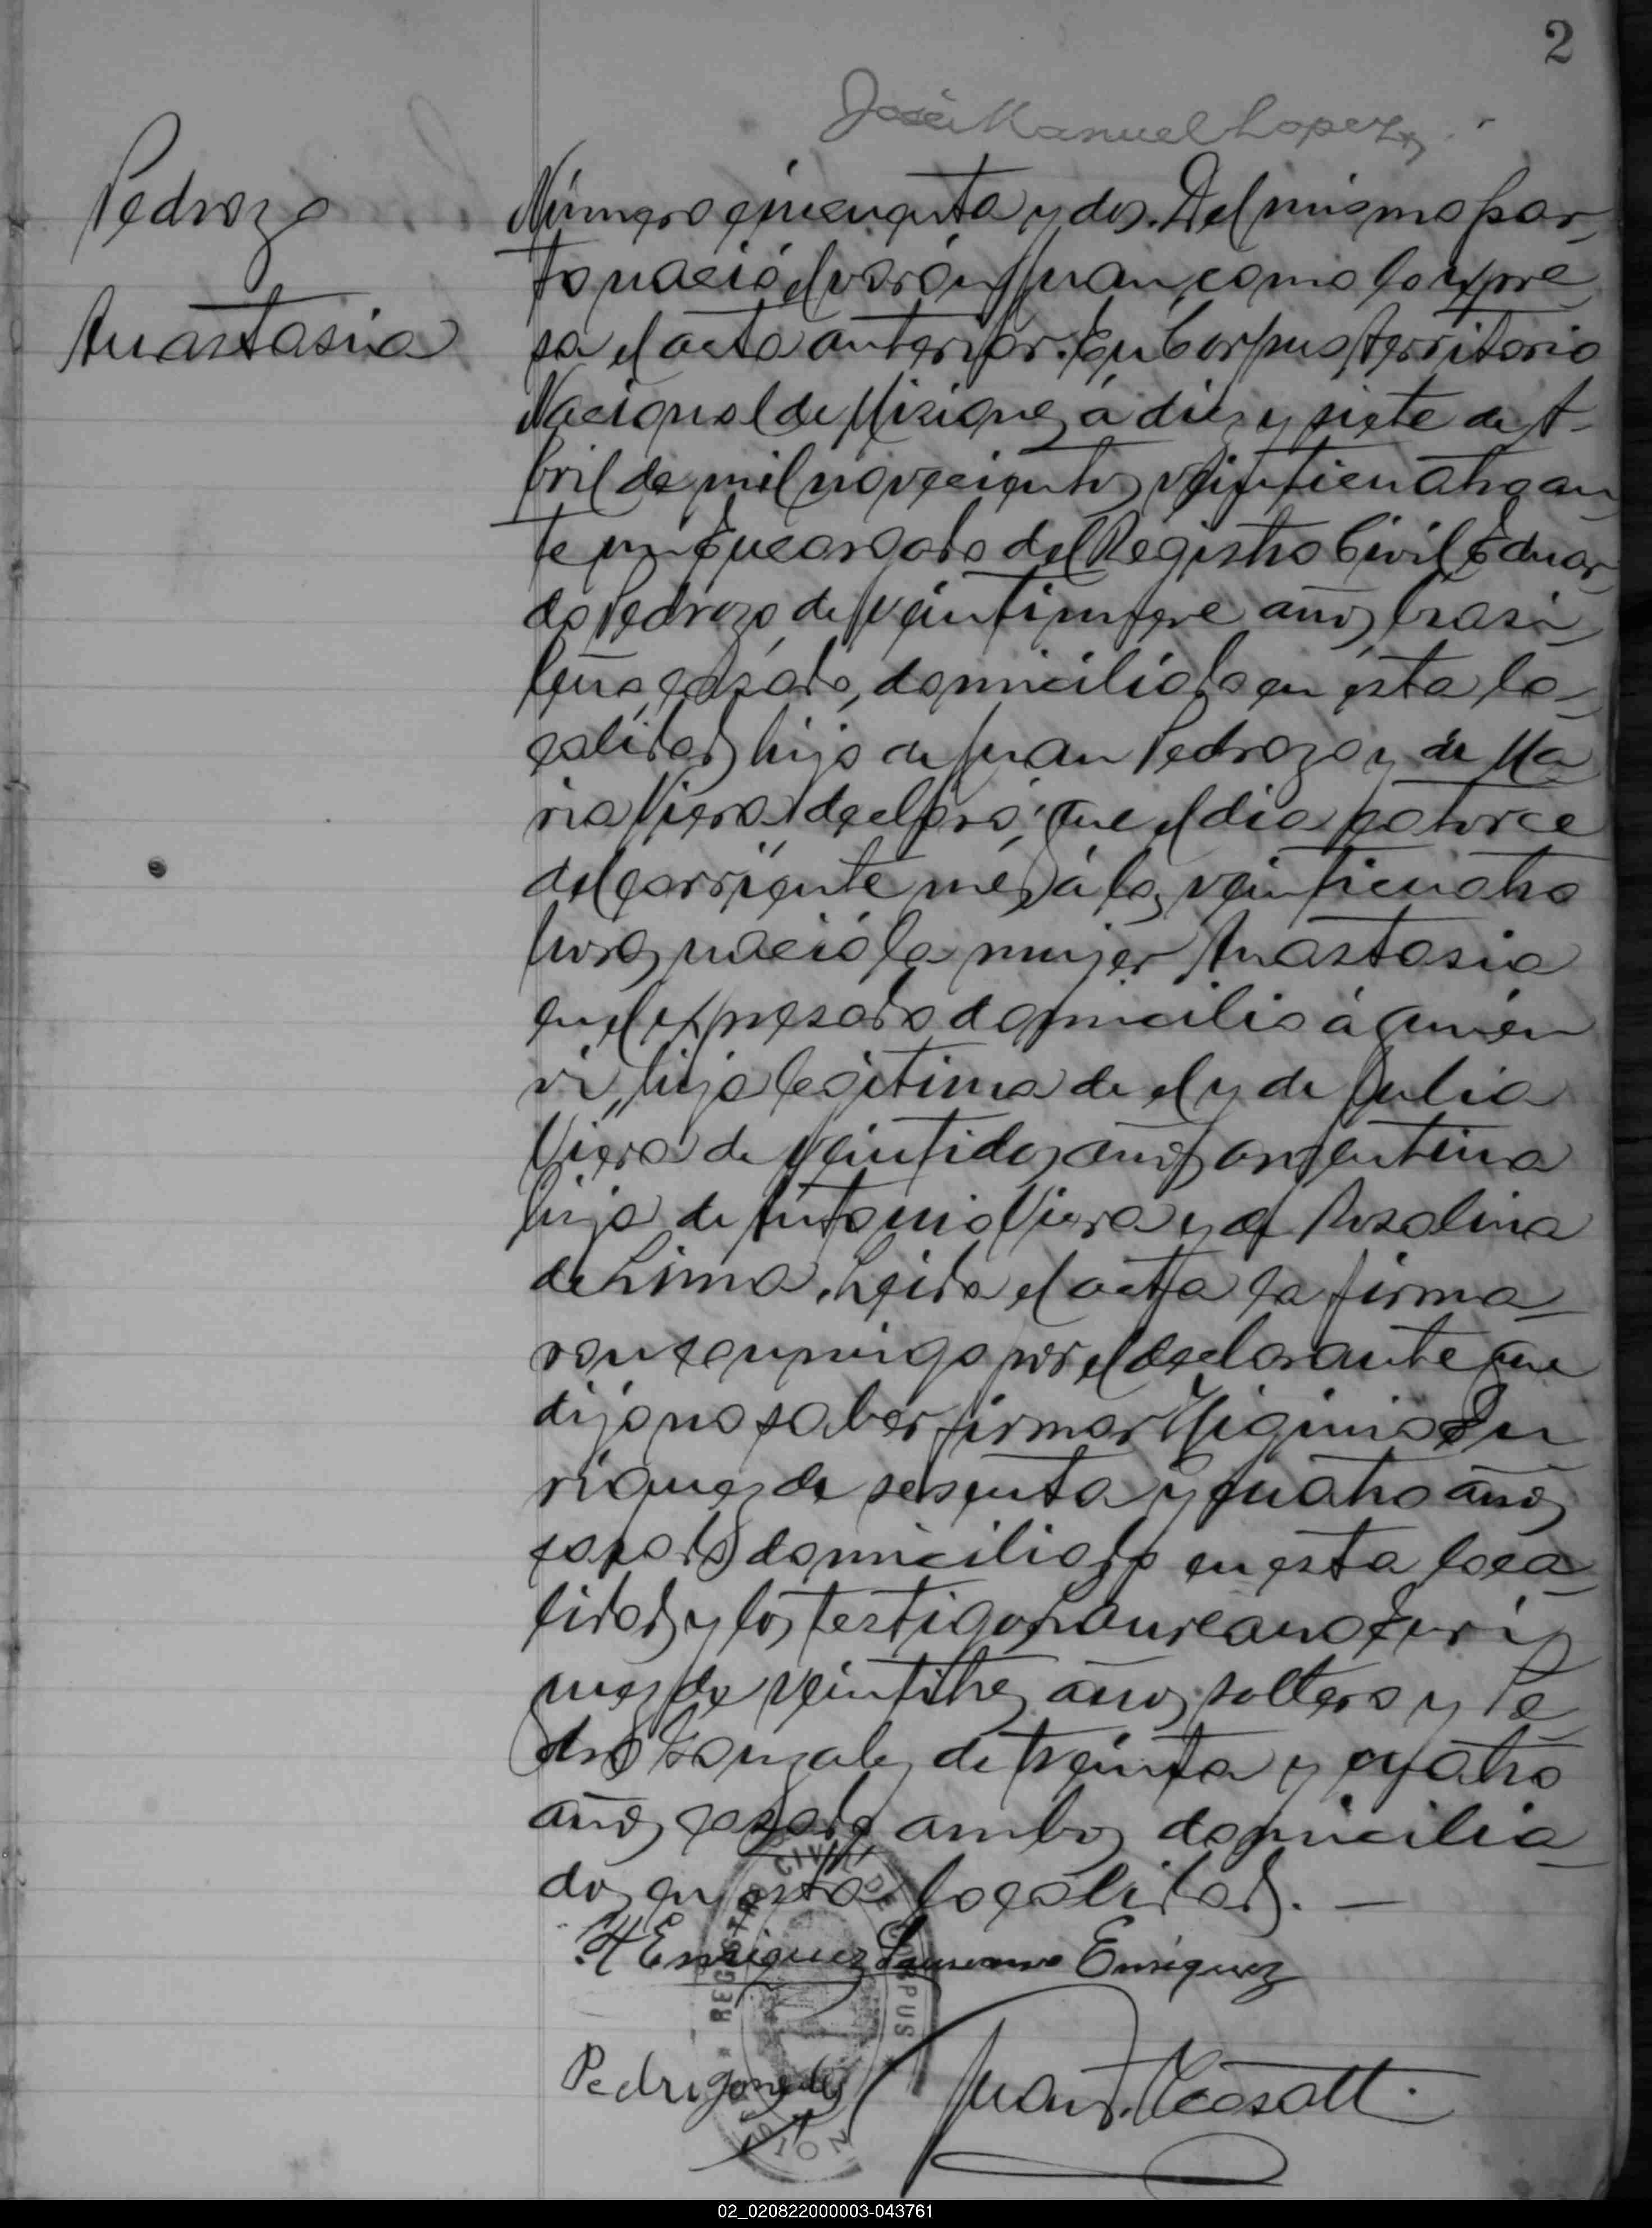 2
José Manuel Lopez
Pedrozo
Anastasia
Número cincuenta y dos. Del mismo par-
to nació el varón Juan, como lo expre-
sa el acta anterior. En Corpus, Territorio
Nacional de Misiones, á diez y siete de A-
bril de mil novecientos veinticuatro an-
te mi Encargado del Registro Civil, Eduar-
do Pedrozo de veintinueve años, brasi-
leño, casado, domiciliado en esta lo-
calidad, hijo de Juan Pedrozo y de Ma-
ria Viera declaró; que el dia catorce
del corriente mes, á las veinticuatro
horas, nació la mujer Anastasia
en el expresado domicilio á quien
vi, hija legitima de el y de Julia
Viera de veintidos años, argentina
hija de Antonio Viera y de Rosalina
de Lima. Leida el acta la firma-
ron conmigo por el declarante que
dijo no saber firmar Higinio En
riquez de sesenta y cuatro años
casado, domiciliado en esta loca-
lidad, y los testigos Laureano Enri-
quez de veintitres años, soltero y Pe-
dro Gonzalez de treinta y cuatro
años, casado ambos domicilia-
dos en esta localidad. —
H Enriquez Laureano Enriquez
REGISTRO CIVIL DE CORPUS
Pedro gonzalez Juan
02_020822000003-043761